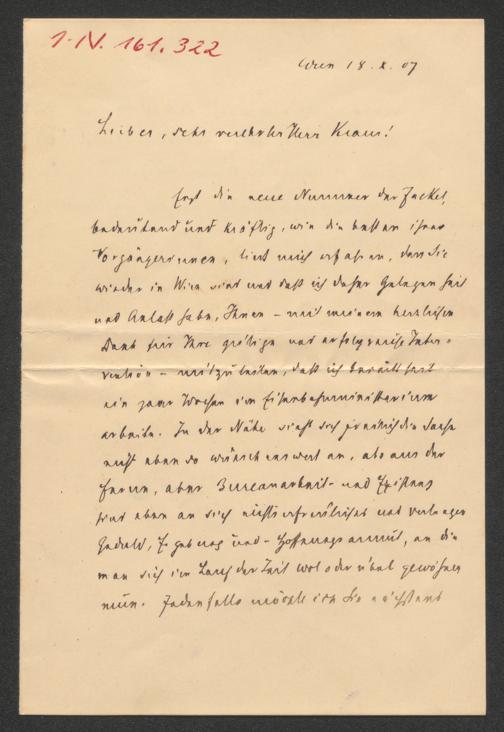 I.N. 161.322
Wien 18. X. 07
Lieber, sehr verehrter Herr Kraus!
Erst die neue Nummer der Fackel,
bedeutend und kräftig, wie die besten ihrer
Vorgängerinnen, liess mich erfahren, dass Sie
wieder in Wien sind und dass ich daher Gelegenheit
und Anlass habe, Ihnen – mit meinem herzlichsten
Dank für Ihre gütige und erfolgreiche Inter-
vention – mitzuteilen, dass ich bereits seit
ein paar Wochen im Eisenbahnministerium
arbeite. In der Nähe sieht sich freilich die Sache
nicht eben so wünschenswert an, als aus der
Ferne, aber Bureauarbeit- und Existenz
sind eben an sich nichts erfreuliches und verlangen
Geduld, Ergebung und Hoffnungsarmut, an die
man sich im Lauf der Zeit wol oder übel gewöhnen
muss. Jedenfalls möchte ich Sie nächstens